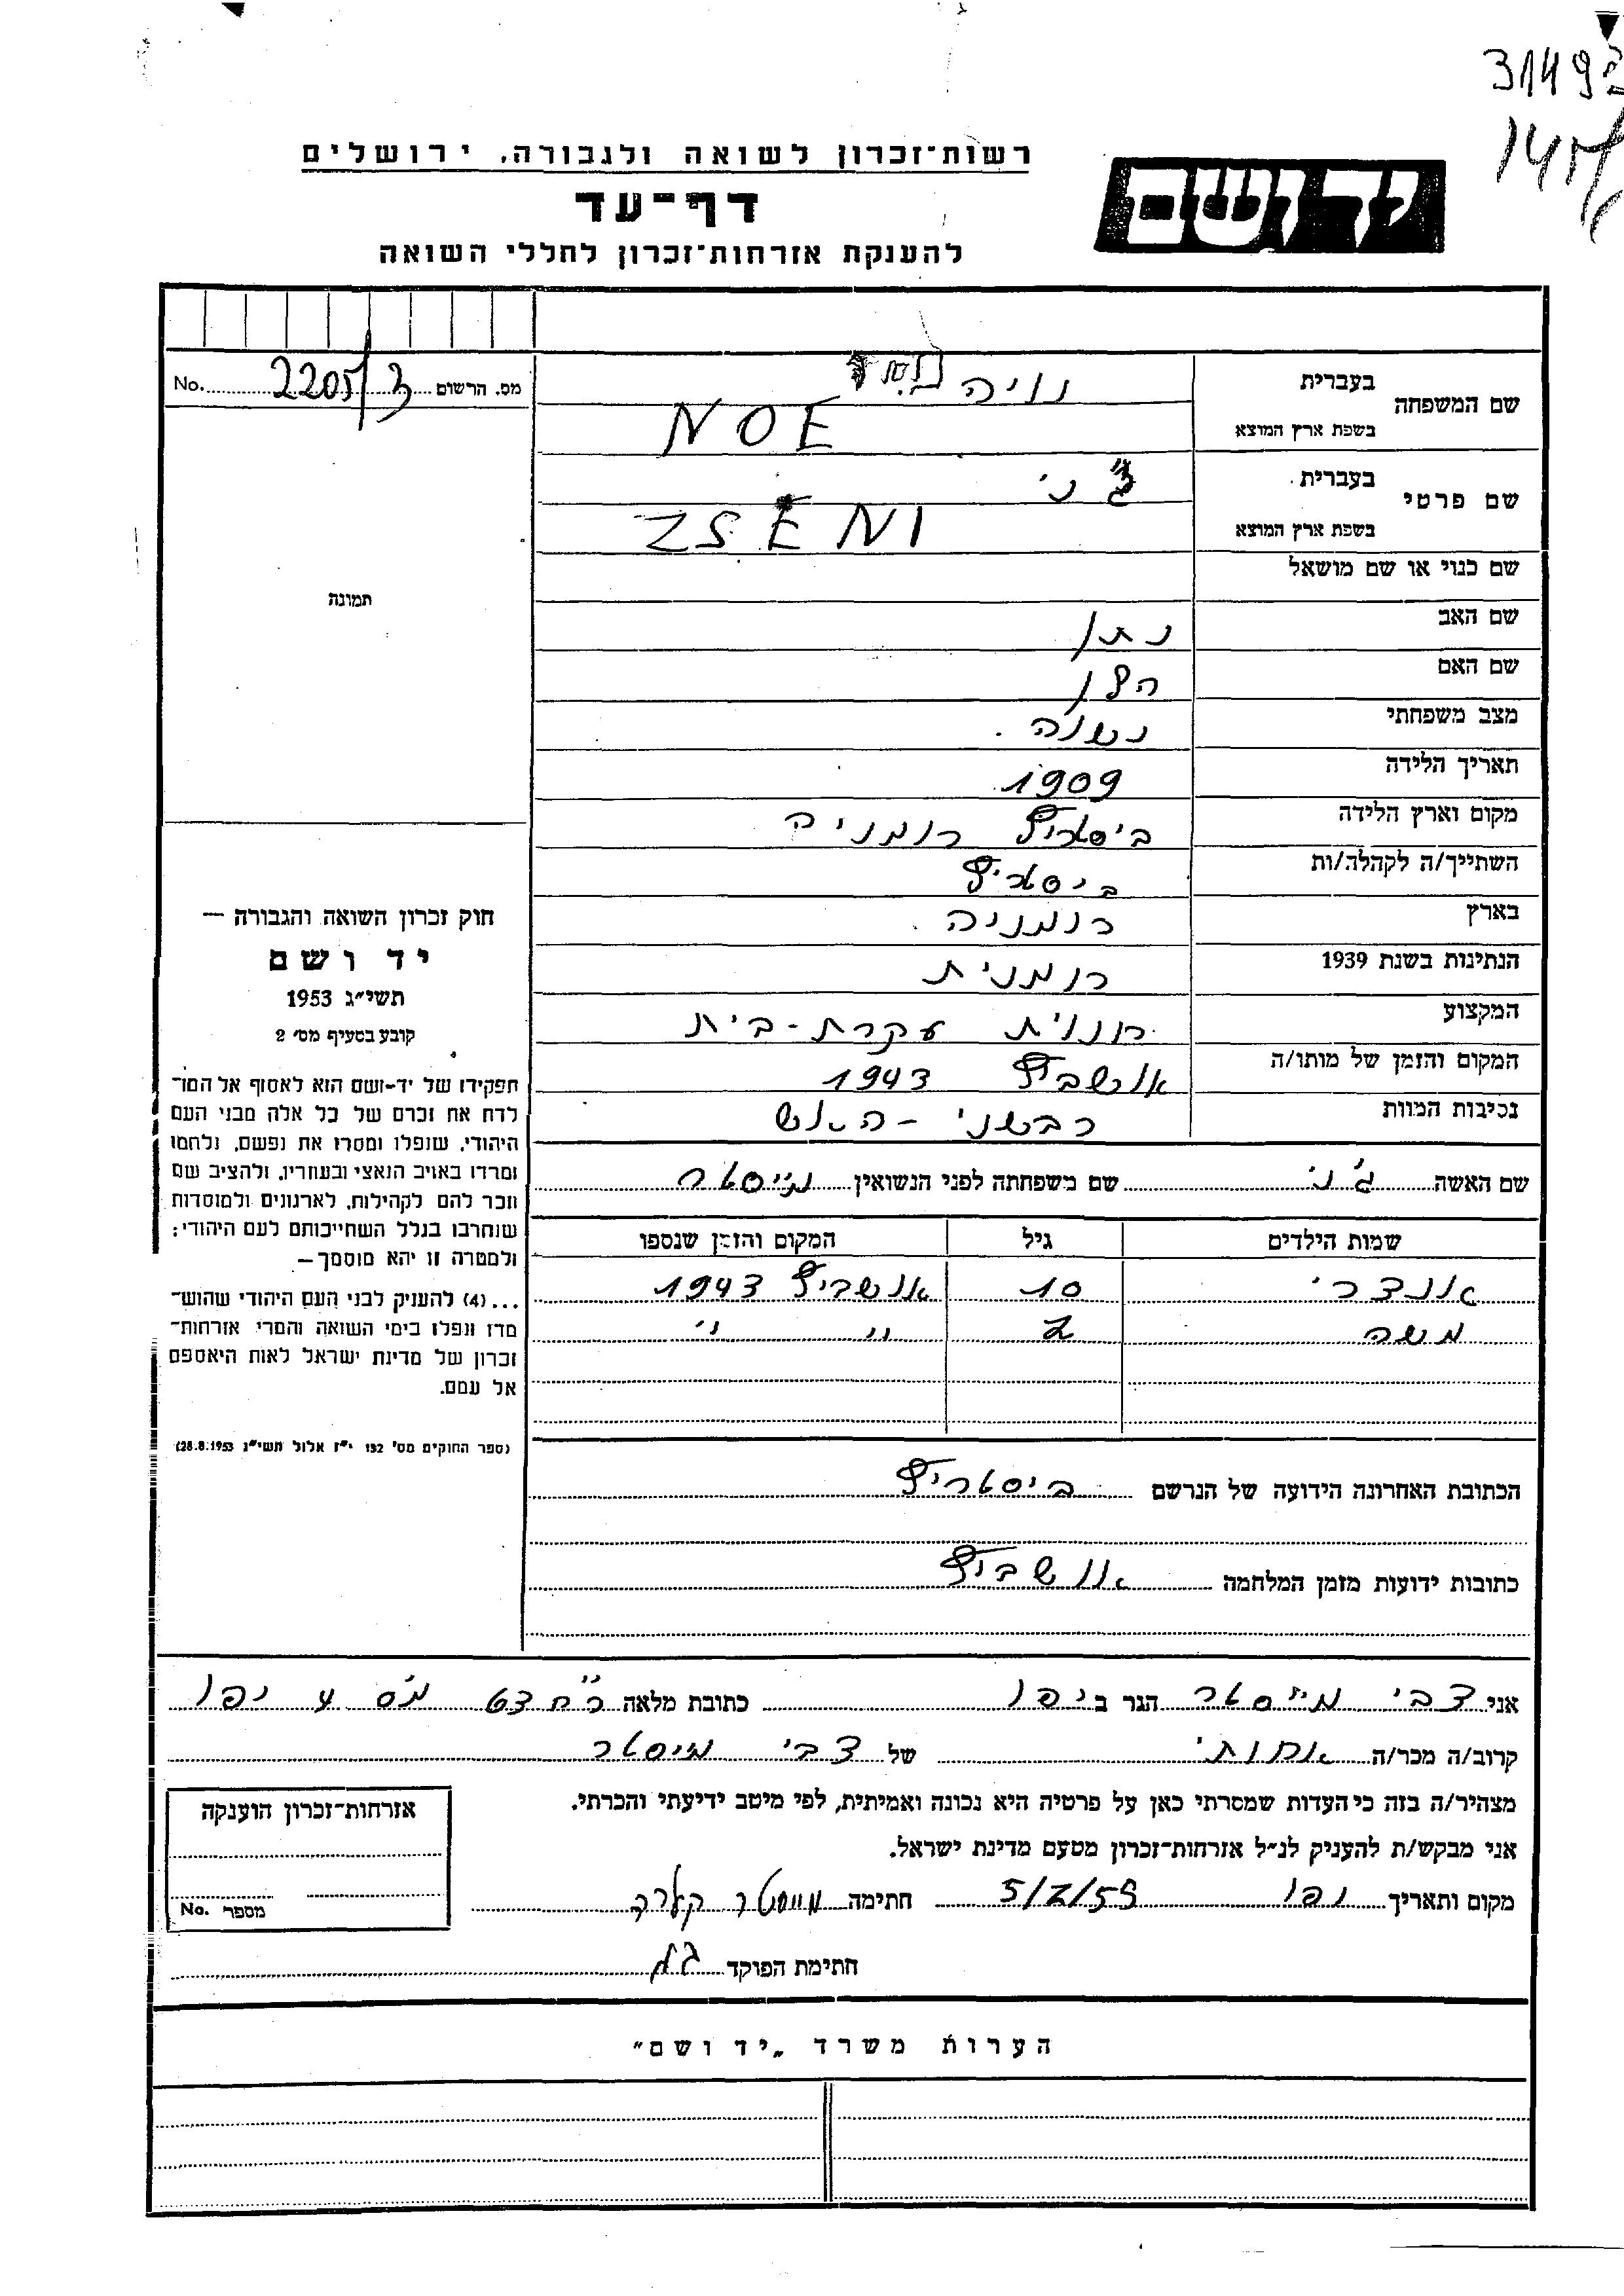 3149
147
רשות־זכרון לשואה ולגבורה, ירושלים
יד ושם
דף־עד
להענקת אזרחות־זכרון לחללי השואה
מס. הרשום 2205/3 No.
שם המשפחה
בעברית נויה
בשפת ארץ המוצא NOE
שם פרטי
בעברית ג'ני
בשפת ארץ המוצא ZSENI
שם כנוי או שם מושאל
תמונה
שם האב נתן
שם האם הלן
מצב משפחתי נשואה
תאריך הלידה 1909
מקום וארץ הלידה ביסטריץ רומניה
השתייך/ה לקהלה/ות ביסטריץ
בארץ רומניה
הנתינות בשנת 1939 רומנית
המקצוע עקרת-בית
המקום והזמן של מותו/ה אושביץ 1943
נסיבות המוות כבשני-האש
שם האשה ג'ני שם משפחתה לפני הנשואין מייסטר
שמות הילדים גיל המקום והזמן שנספו
אנדרי 10 אושביץ 1943
משה 2 " "
חוק זכרון השואה והגבורה —
יד ושם
תשי״ג 1953
קובע בסעיף מס׳ 2
תפקידו של יד-ושם הוא לאסוף אל המו־
לדת את זכרם של כל אלה מבני העם
היהודי, שנפלו ומסרו את נפשם, נלחמו
ומרדו באויב הנאצי ובעוזריו, ולהציב שם
וזכר להם לקהילות, לארגונים ולמוסדות
שנחרבו בגלל השתייכותם לעם היהודי;
ולמטרה זו יהא מוסמך—
...(4) להעניק לבני העם היהודי שהוש־
מדו ונפלו בימי השואה והמרי אזרחות־
זכרון של מדינת ישראל לאות היאספם
אל עמם.
(ספר החוקים מס׳ 132 י״ז אלול תשי״ג 28.8.1953)
הכתובת האחרונה הידועה של הנרשם ביסטריץ
כתובות ידועות מזמן המלחמה אושביץ
אני צבי מייסטר הגר ב יפו כתובת מלאה מס 4 יפו
קרוב/ה מכר/ה אחותי של צבי מייסטר
מצהיר/ה בזה כי העדות שמסרתי כאן על פרטיה היא נכונה ואמיתית, לפי מיטב ידיעתי והכרתי.
אני מבקש/ת להעניק לנ״ל אזרחות־זכרון מטעם מדינת ישראל.
מקום ותאריך יפו חתימה מייסטר קלרה
חתימת הפוקד
אזרחות־זכרון הוענקה
מספר No.
הערות משרד „יד ושם״